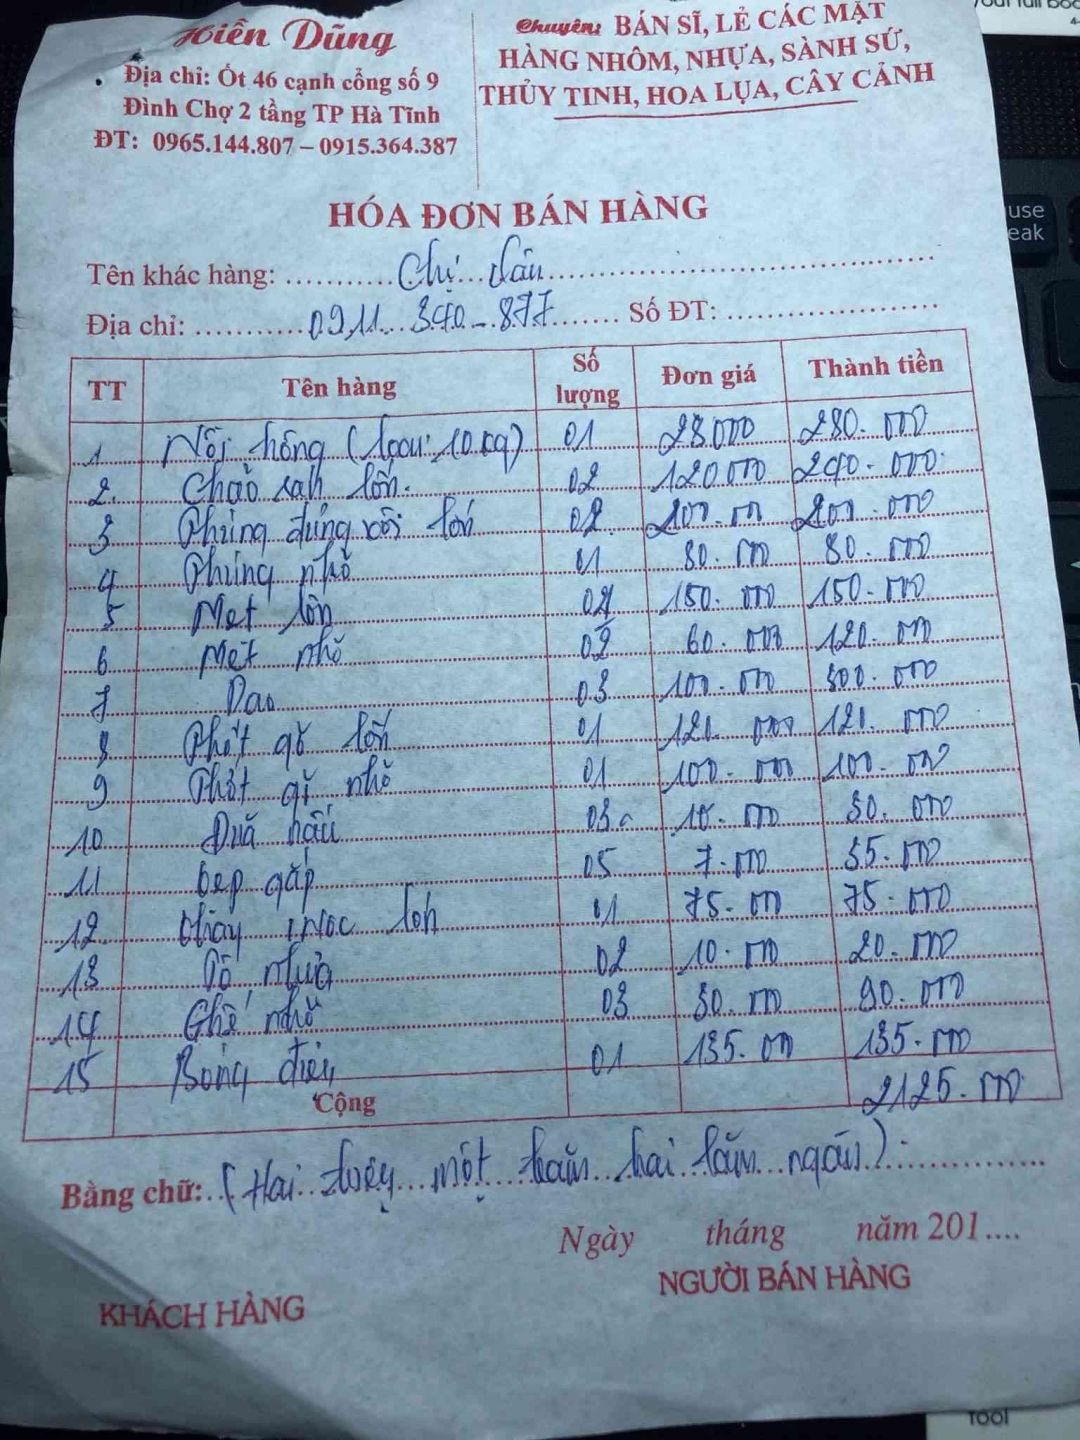 Hiền Dũng
Địa chỉ: Ốt 46 cạnh cổng số 9
Đình Chợ 2 tầng TP Hà Tĩnh
ĐT: 0965.144.807 – 0915.364.387
Chuyên: BÁN SỈ, LẺ CÁC MẶT
HÀNG NHÔM, NHỰA, SÀNH SỨ,
THỦY TINH, HOA LỤA, CÂY CẢNH
HÓA ĐƠN BÁN HÀNG
Tên khác hàng: Chị
Địa chỉ: 0911 340 - 877 Số ĐT:
TT Tên hàng Số lượng Đơn giá Thành tiền
1 Nồi hông (loại 10 kg) 01 28000 280.000
2. Chảo lớn. 02 120000 240.000
3 đựng xôi lớn 02 200.000
4 nhỏ 01 80.000 80.000
5 Mẹt lớn 150.000 150.000
6 Mẹt nhỏ 02 60.000 120.000
7 Dao 03 100.000 300.000
8 Phớt gỗ lớn 01 120.000 120.000
9 Phớt gỗ nhỏ 01 100.000 100.000
10 Đuã nấu 03 10.000 30.000
11 kẹp gắp 05 7.000 35.000
12 inoc lớn 01 75.000 75.000
13 Tô nhựa 02 10.000 20.000
14 Ghế nhỏ 03 30.000 90.000
15 Bóng điện 01 135.000 135.000
Cộng 2125.000
Bằng chữ: (Hai triệu một trăm hai lăm ngàn).
Ngày tháng năm 201....
KHÁCH HÀNG NGƯỜI BÁN HÀNG
use
eak
tool